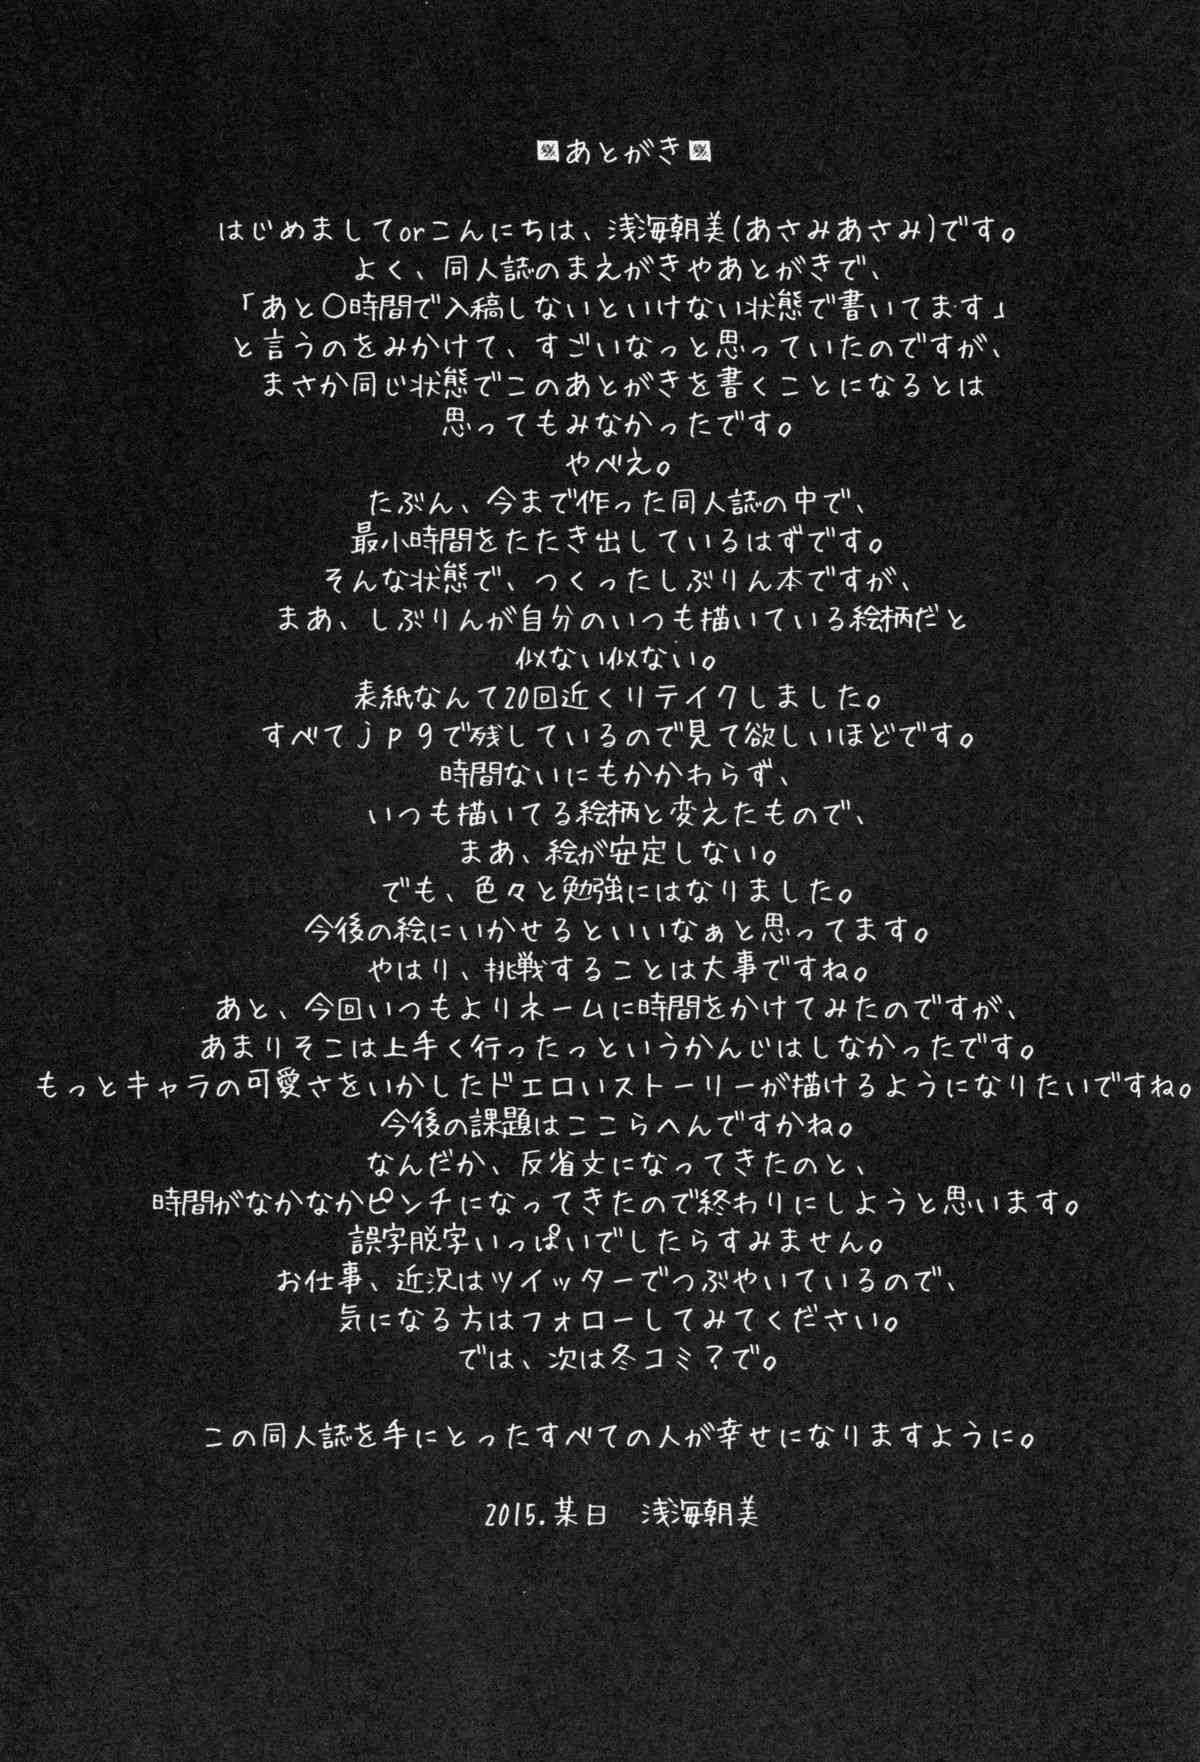 あとがき
はじめましてorこんにちは、浅海朝美(あさみあさみ)です。
よく、同人誌のまえがきやあとがきで、
「あと〇時間で入稿しないといけない状態で書いてます」
と言うのをみかけて、すごいなっと思っていたのですが、
まさか同じ状態でこのあとがきを書くことになるとは
思ってもみなかったです。
やべえ。
たぶん、今まで作った同人誌の中で、
最小時間をたたき出しているはずです。
そんな状態で、つくったしぶりん本ですが、
まあ、しぶりんが自分のいつも描いている絵柄だと
似ない似ない。
表紙なんて20回近くリテイクしました。
すべてjpgで残しているので見て欲しいほどです。
時間ないにもかかわらず、
いつも描いてる絵柄と変えたもので、
まあ、絵が安定しない。
でも、色々と勉強にはなりました。
今後の絵にいかせるといいなぁと思ってます。
やはり、挑戦することは大事ですね。
あと、今回いつもよりネームに時間をかけてみたのですが、
あまりそこは上手く行ったっというかんじはしなかったです。
もっとキャラの可愛さをいかしたドエロいストーリーが描けるようになりたいですね。
今後の課題はここらへんですかね。
なんだか、反省文になってきたのと、
時間がなかなかピンチになってきたので終わりにしようと思います。
誤字脱字いっぱいでしたらすみません。
お仕事、近況はツイッターでつぶやいているので、
気になる方はフォローしてみてください。
では、次は冬コミ？で。
この同人誌を手にとったすべての人が幸せになりますように。
2015.某日　浅海朝美